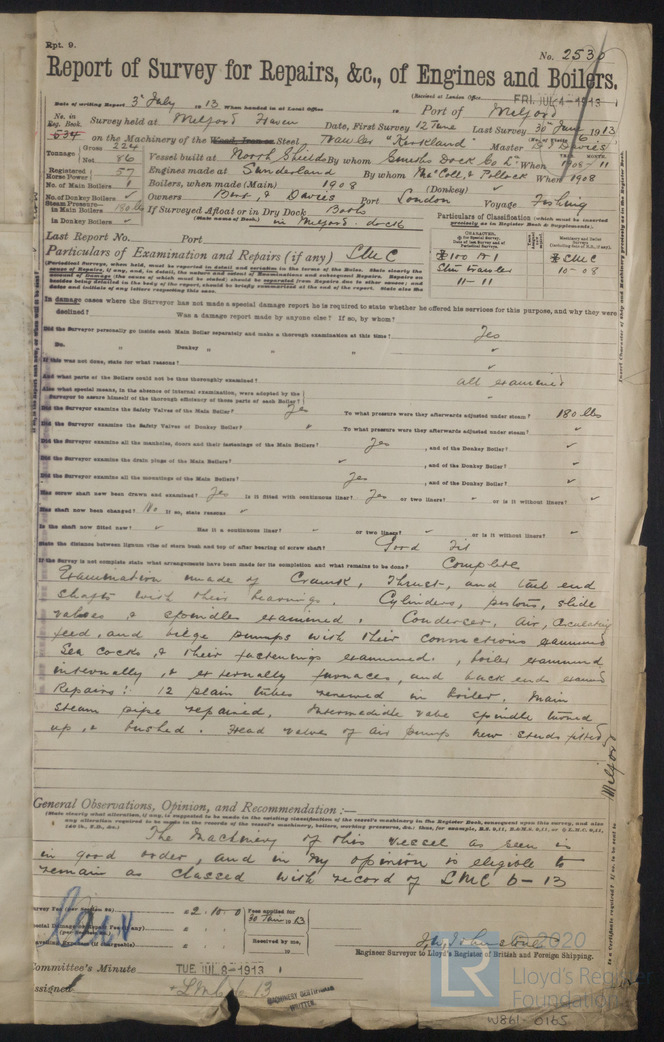 Rpt. 9.
No. 2530
Report of Survey for Repairs, &c., of Engines and Boilers.
(Received at London Office FRI. JUL 4-1913)
Date of writing Report 3rd July 1913 When handed in at Local Office 19 Port of Milford
No. in Reg. Book. Survey held at Milford Haven Date, First Survey 12 June Last Survey 30th June 1913
534 on the Machinery of the Wood, Iron or Steel Trawler "Kirkland" Master D J Davies
Tonnage Gross 224 Net 86 Vessel built at North Shields By whom Smiths Dock Co Ld When 1908-11
Registered Horse Power 57 Engines made at Sunderland By whom MacColl & Pollock When 1908
No. of Main Boilers 1 Boilers, when made (Main) 1908 (Donkey) ✓
No. of Donkey Boilers ✓ Owners Port London Voyage Fishing
Steam Pressure in Main Boilers 180 lbs If Surveyed Afloat or in Dry Dock Both
in Donkey Boilers ✓ (State name of Dock.) in Milford dock
Particulars of Classification (which must be inserted precisely as in Register Book & Supplements).
Last Report No. Port
Particulars of Examination and Repairs (if any) LMC
✠ 100 A 1 ✠ LMC
Stm trawler 10-08
11-11
In damage cases where the Surveyor has not made a special damage report he is required to state whether he offered his services for this purpose, and why they were
declined? Was a damage report made by anyone else? If so, by whom?
Did the Surveyor personally go inside each Main Boiler separately and make a thorough examination at this time? Yes
Do. " Donkey " " " ✓
If this was not done, state for what reasons? ✓
And what parts of the Boilers could not be thus thoroughly examined? all examined
Also what special means, in the absence of internal examination, were adopted by the
Surveyor to assure himself of the thorough efficiency of those parts of each Boiler?
Did the Surveyor examine the Safety Valves of the Main Boiler? Yes To what pressure were they afterwards adjusted under steam? 180 lbs
Did the Surveyor examine the Safety Valves of Donkey Boiler? ✓ To what pressure were they afterwards adjusted under steam? ✓
Did the Surveyor examine all the manholes, doors and their fastenings of the Main Boilers? Yes , and of the Donkey Boiler? ✓
Did the Surveyor examine the drain plugs of the Main Boilers? ✓ , and of the Donkey Boiler? ✓
Did the Surveyor examine all the mountings of the Main Boilers? Yes , and of the Donkey Boiler? ✓
Has screw shaft now been drawn and examined? Yes Is it fitted with continuous liner? Yes or two liners? ✓ or is it without liners? ✓
Has shaft now been changed? No If so, state reasons ✓
Is the shaft now fitted new? ✓ Has it a continuous liner? ✓ or two liners? ✓ or is it without liners? ✓
State the distance between lignum vitæ of stern bush and top of after bearing of screw shaft? Good Fit
If the Survey is not complete state what arrangements have been made for its completion and what remains to be done? Complete
Examination made of Crank, Thrust, and tail end
shafts with their bearings. Cylinders, pistons, slide
valves & spindles examined. Condenser, Air, Circulating
feed, and bilge pumps with their connections examined
Sea Cocks, & their fastenings examined, boiler examined
internally, & externally furnaces, and back ends examd
Repairs: 12 plain tubes renewed in boiler. Main
Steam pipe repaired. Intermediate valve spindle turned
up, & bushed. Head valves of air pump new studs fitted
Milford
General Observations, Opinion, and Recommendation:—
The Machinery of this vessel as seen is
in good order, and in my opinion is eligible to
remain as classed with record of LMC 6-13
£ 2.10.0 Fees applied for 30 June 1913
Received by me,
Engineer Surveyor to Lloyd's Register of British and Foreign Shipping.
Committee's Minute TUE. JUL 8-1913
Assigned + LMC 6 13
MACHINERY CERTIFICATE WRITTEN.
© 2020
LR
Lloyd's Register
Foundation
W861-0165